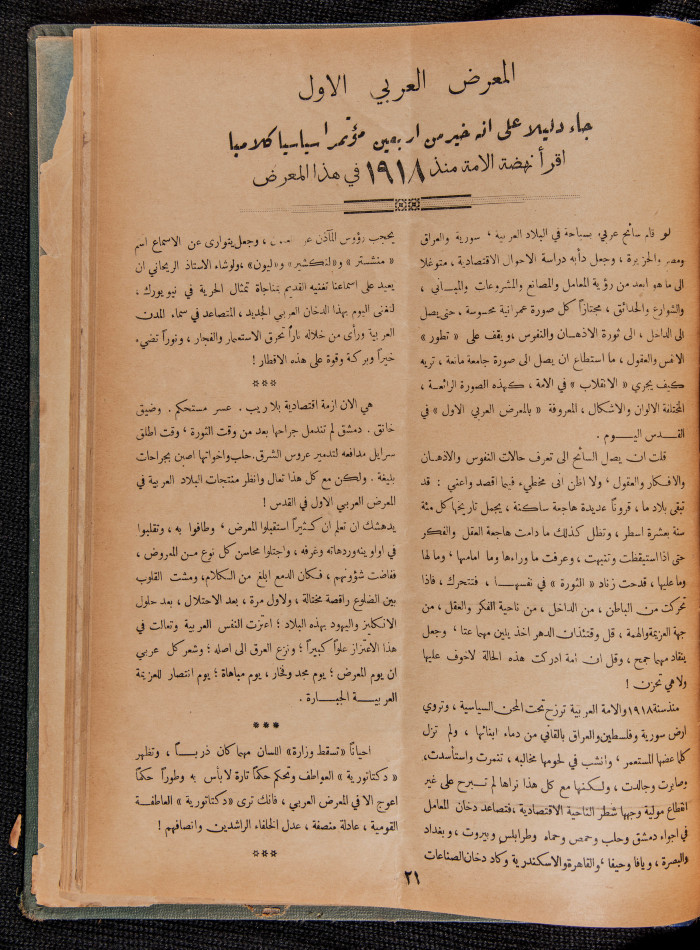 المعرض العربي الاول
جاء دليلا على انه خير من اربعين مؤتمرا سياسيا كلاميا
اقرأ نهضة الامة منذ ١٩١٨ في هذا المعرض
لو قام سائح عربي بسياحة في البلاد العربية ، سورية والعراق
ومصر والجزيرة ، وجعل دأبه دراسة الاحوال الاقتصادية ، متوغلا
الى ما هو ابعد من رؤية المعامل والمصانع والمشروعات والمباني ،
والشوارع والحدائق ، مجتازاً كل صورة عمرانية محسوسة . حتى يصل
الى الداخل ، الى ثورة الاذهان والنفوس ، ويقف على « تطور »
الانفس والعقول ، ما استطاع ان يصل الى صورة جامعة مانعة ، تريه
كيف يجري « الانقلاب » في الامة ، كهذه الصورة الرائعة ،
المختلفة الالوان والاشكال ، المعروفة « بالمعرض العربي الاول » في
القدس اليوم .
قلت ان يصل السائح الى تعرف حالات النفوس والاذهان
والافكار والعقول ، ولا اظن اني مخطيء فيما اقصد واعني : قد
تبقى بلاد ما ، قروناً عديدة هاجعة ساكنة ، يجمل تاريخها كل مئة
سنة بعشرة اسطر ، وتظل كذلك ما دامت هاجعة العقل والفكر
حتى اذا استيقظت وتنبهت ، وعرفت ما وراءها وما امامها ، وما لها
وما عليها ، قدحت زناد « الثورة » في نفسها ، فتتحرك ، فاذا
تحركت من الباطن ، من الداخل ، من ناحية الفكر والعقل ، من
جهة العزيمة والهمة ، قل وقتئذان الدهر اخذ يلين مهما عتا ، وجعل
ينقاد مهما جمح ، وقل ان امة ادركت هذه الحالة لاخوف عليها
ولا هي تحزن !
منذ سنة ١٩١٨ والامة العربية ترزح تحت المحن السياسية ، وتروي
ارض سورية وفلسطين والعراق بالقاني من دماء ابنائها ، ولم تزل
كلما عضها المستعمر ، وانشب في لحومها مخالبه ، تنمرت واستأسدت ،
وصابرت وجالدت ، ولكنها مع كل هذا نراها لم تبرح على غير
انقطاع مولية وجهها شطر الناحية الاقتصادية ، فتصاعد دخان المعامل
في اجواء دمشق وحلب وحمص وحماه وطرابلس وبيروت ، وبغداد
والبصرة ، ويافا وحيفا ، والقاهرة والاسكندرية وكاد دخان الصناعات
يحجب رؤوس المآذن ، وجعل يتوارى عن الاسماع اسم
« منشستر » و« لنكشير » و« ليون » ، ولو شاء الاستاذ الريحاني ان
يعيد على اسماعنا تغنيه القديم بمناجاة تمثال الحرية في نيويورك ،
لتغنى اليوم بهذا الدخان العربي الجديد ، المتصاعد في سماء المدن
العربية ورأى من خلاله ناراً تحرق الاستعمار والفجار ، ونوراً تضيء
خيراً وبركة وقوة على هذه الاقطار !
***
هي الان ازمة اقتصادية بلا ريب . عسر مستحكم . وضيق
خانق . دمشق لم تندمل جراحها بعد من وقت الثورة ، وقت اطلق
سرايل مدافعه لتدمير عروس الشرق . حلب واخواتها اصبن بجراحات
بليغة . ولكن مع كل هذا تعال وانظر منتجات البلاد العربية في
المعرض العربي الاول في القدس !
يدهشك ان تعلم ان كثيراً استقبلوا المعرض ، وطافوا به ، وتقلبوا
في اواوينه وردهاته وغرفه ، واجتلوا محاسن كل نوع من المعروض ،
ففاضت شؤونهم ، فكان الدمع ابلغ من الكلام ، ومشت القلوب
بين الضلوع راقصة مختالة ، ولاول مرة ، بعد الاحتلال ، بعد حلول
الانكليز واليهود بهذه البلاد ؛ اعتزت النفس العربية وتعالت في
هذا الاعتزاز علواً كبيراً ؛ ونزع العرق الى اصله ؛ وشعر كل عربي
ان يوم المعرض ؛ يوم مجد وفخار ، يوم مباهاة ؛ يوم انتصار للعزيمة
العربية الجبارة .
***
احياناً « تسقط وزارة » اللسان مهما كان ذرباً ، وتظهر
« دكتاتورية » العواطف وتحكم حكماً تارة لا بأس به وطوراً حكماً
اعوج الا في المعرض العربي ، فانك ترى « دكتاتورية » العاطفة
القومية ، عادلة منصفة ، عدل الخلفاء الراشدين وانصافهم !
***
٢١